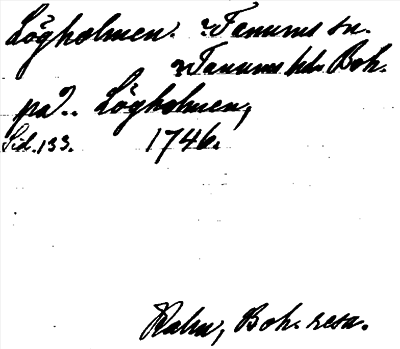 Lögholmen. Tanums sn.
Tanums hd. Boh.
på.. Lögholmen,
Sid. 133. 1746.
Kalm, Boh. resa.